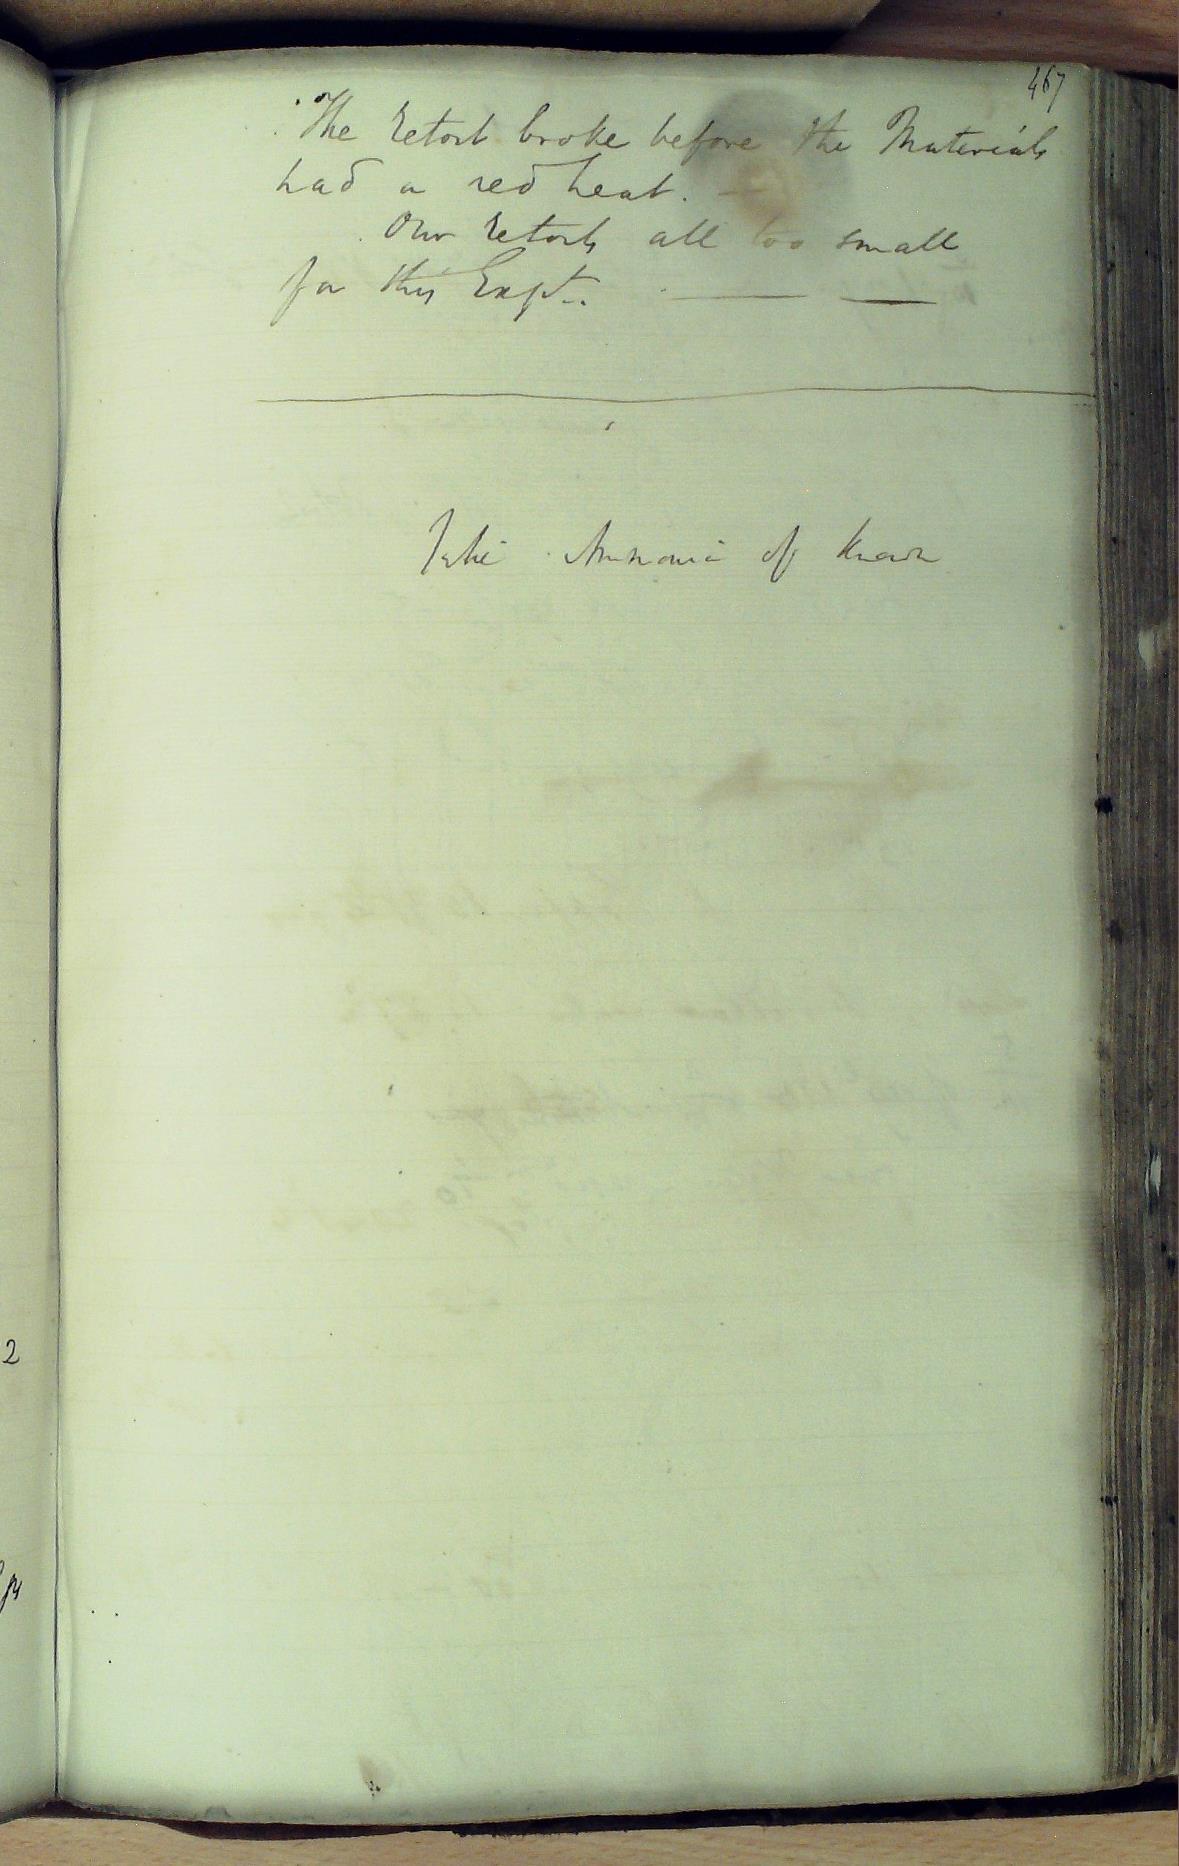 467
The retort broke before the Materials
had a red heat. —
Our retorts all too small
for this Expt.. — —
Take Ammonia of known
2